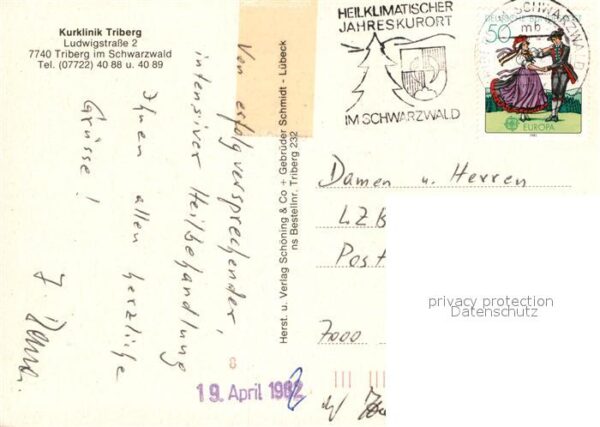 Kurklinik Triberg
Ludwigstraße 2
7740 Triberg im Schwarzwald
Tel. (07722) 40 88 u. 40 89
Von erfolgversprechender,
intensiver Heilbehandlung
Ihnen allen herzliche
Grüsse!
Herst. u. Verlag Schöning & Co + Gebrüder Schmidt - Lübeck
ns Bestellnr. Triberg 232
HEILKLIMATISCHER
JAHRESKURORT
IM SCHWARZWALD
SCHWARZWALD
mb
DEUTSCHE BUNDESPOST
50
EUROPA
Damen u. Herren
LZB
Post
7000
privacy protection
Datenschutz
8
19. April 1982